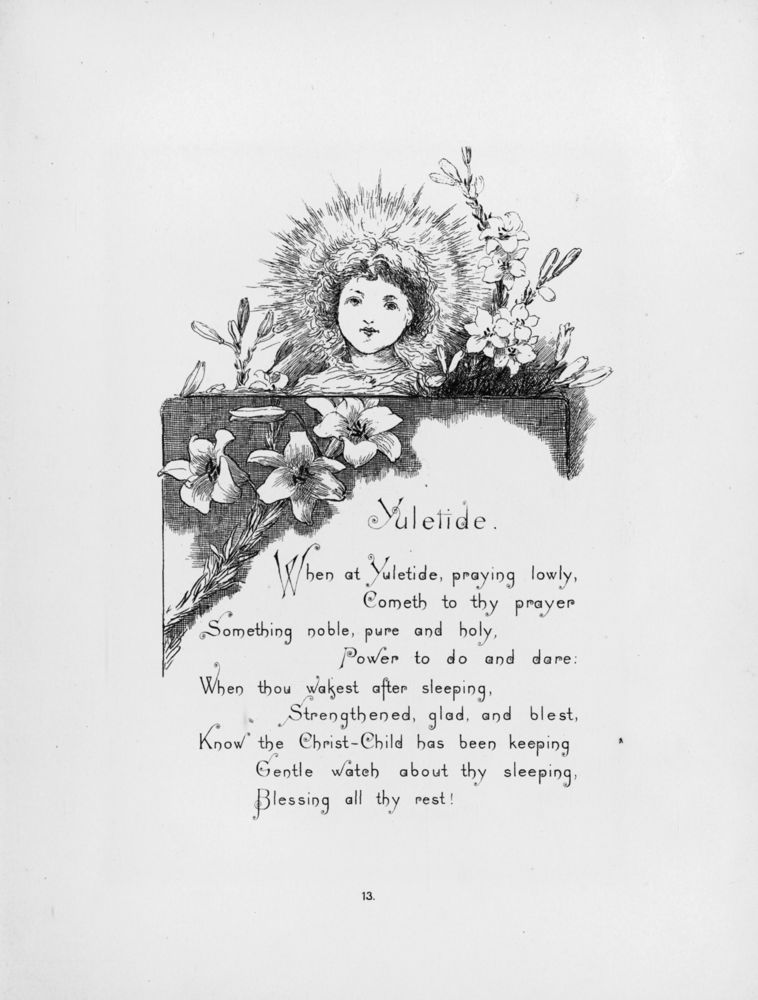 Yuletide.
When at Yuletide, praying lowly,
Cometh to thy prayer
Something noble, pure and holy,
Power to do and dare:
When thou wakest after sleeping,
Strengthened, glad, and blest,
Know the Christ-Child has been keeping
Gentle watch about thy sleeping,
Blessing all thy rest!
13.